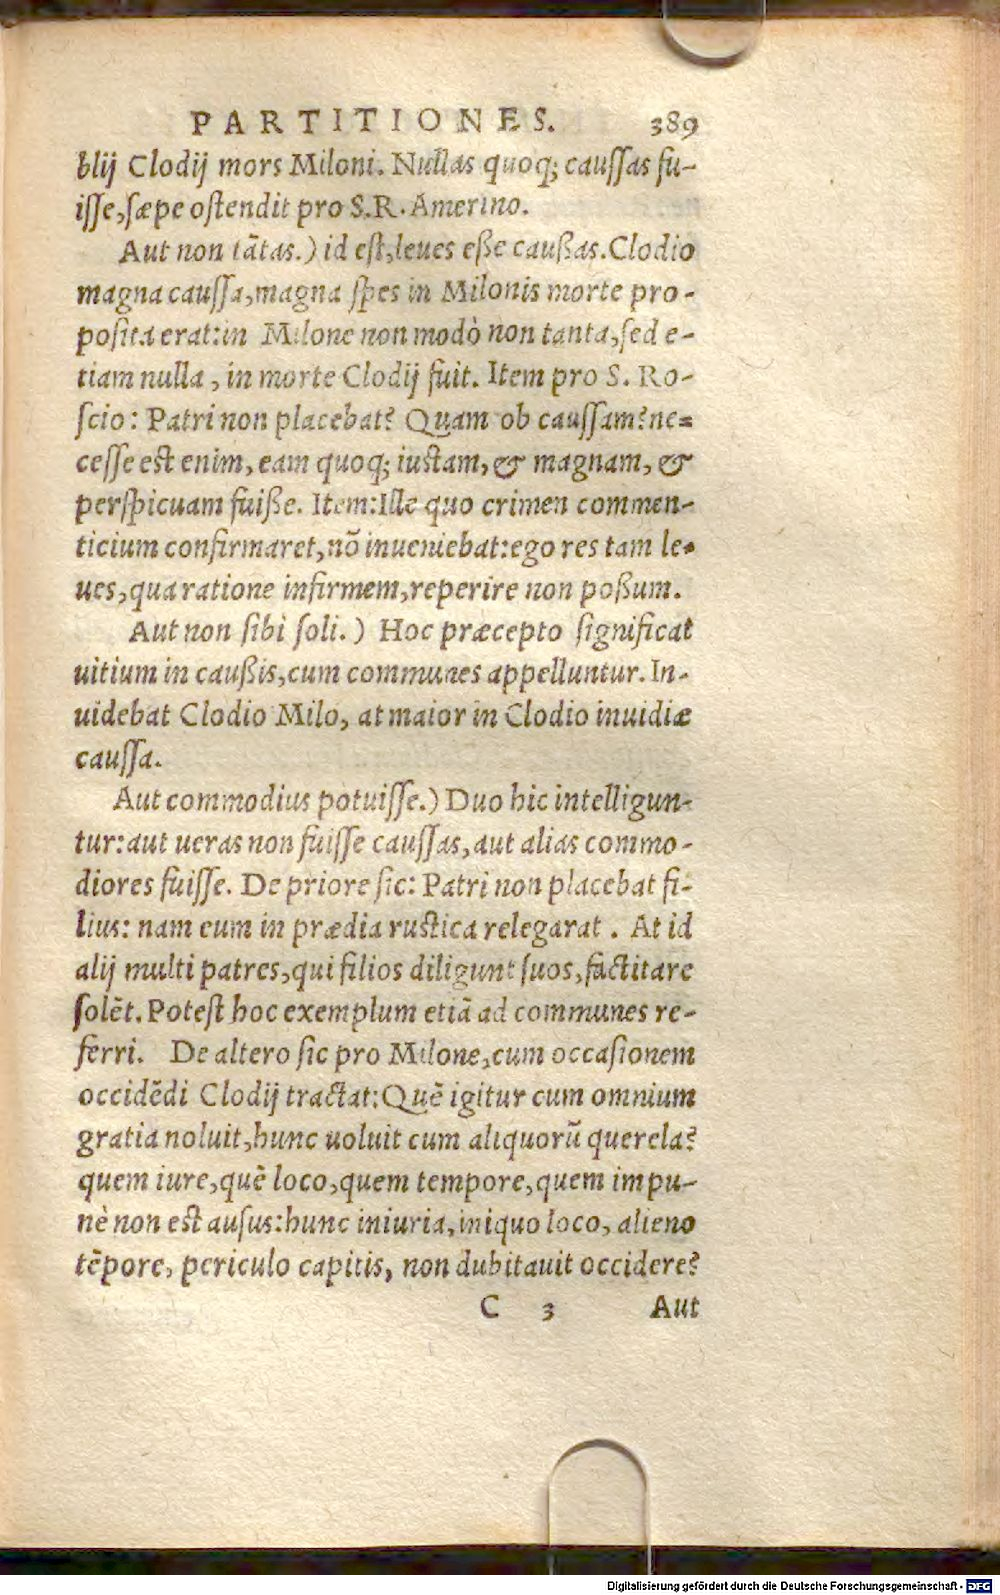 PARTITIONES. 389
blij Clodij mors Miloni. Nullas quoq; caussas fu-
isse, sæpe ostendit pro S.R. Amerino.
Aut non tãtas.) id est, leues eße caußas. Clodio
magna caussa, magna spes in Milonis morte pro-
posita erat: in Milone non modò non tanta, sed e-
tiam nulla, in morte Clodij fuit. Item pro S. Ro-
scio: Patri non placebat? Quam ob caussam? ne=
cesse est enim, eam quoq; iustam, & magnam, &
perspicuam fuiße. Item: Ille quo crimen commen-
ticium confirmaret, nõ inueniebat: ego res tam le-
ues, qua ratione infirmem, reperire non poßum.
Aut non sibi soli.) Hoc præcepto significat
uitium in caußis, cum communes appelluntur. In-
uidebat Clodio Milo, at maior in Clodio inuidiæ
caussa.
Aut commodius potuisse.) Duo hic intelligun-
tur: aut ueras non fuisse caussas, aut alias commo-
diores fuisse. De priore sic: Patri non placebat fi-
lius: nam eum in prædia rustica relegarat. At id
alij multi patres, qui filios diligunt suos, factitare
solẽt. Potest hoc exemplum etiã ad communes re-
ferri. De altero sic pro Milone, cum occasionem
occidẽdi Clodij tractat: Quẽ igitur cum omnium
gratia noluit, hunc uoluit cum aliquorũ querela?
quem iure, quẽ loco, quem tempore, quem impu-
nè non est ausus: hunc iniuria, iniquo loco, alieno
tẽpore, periculo capitis, non dubitauit occidere?
C 3 Aut
Digitalisierung gefördert durch die Deutsche Forschungsgemeinschaft - DFG